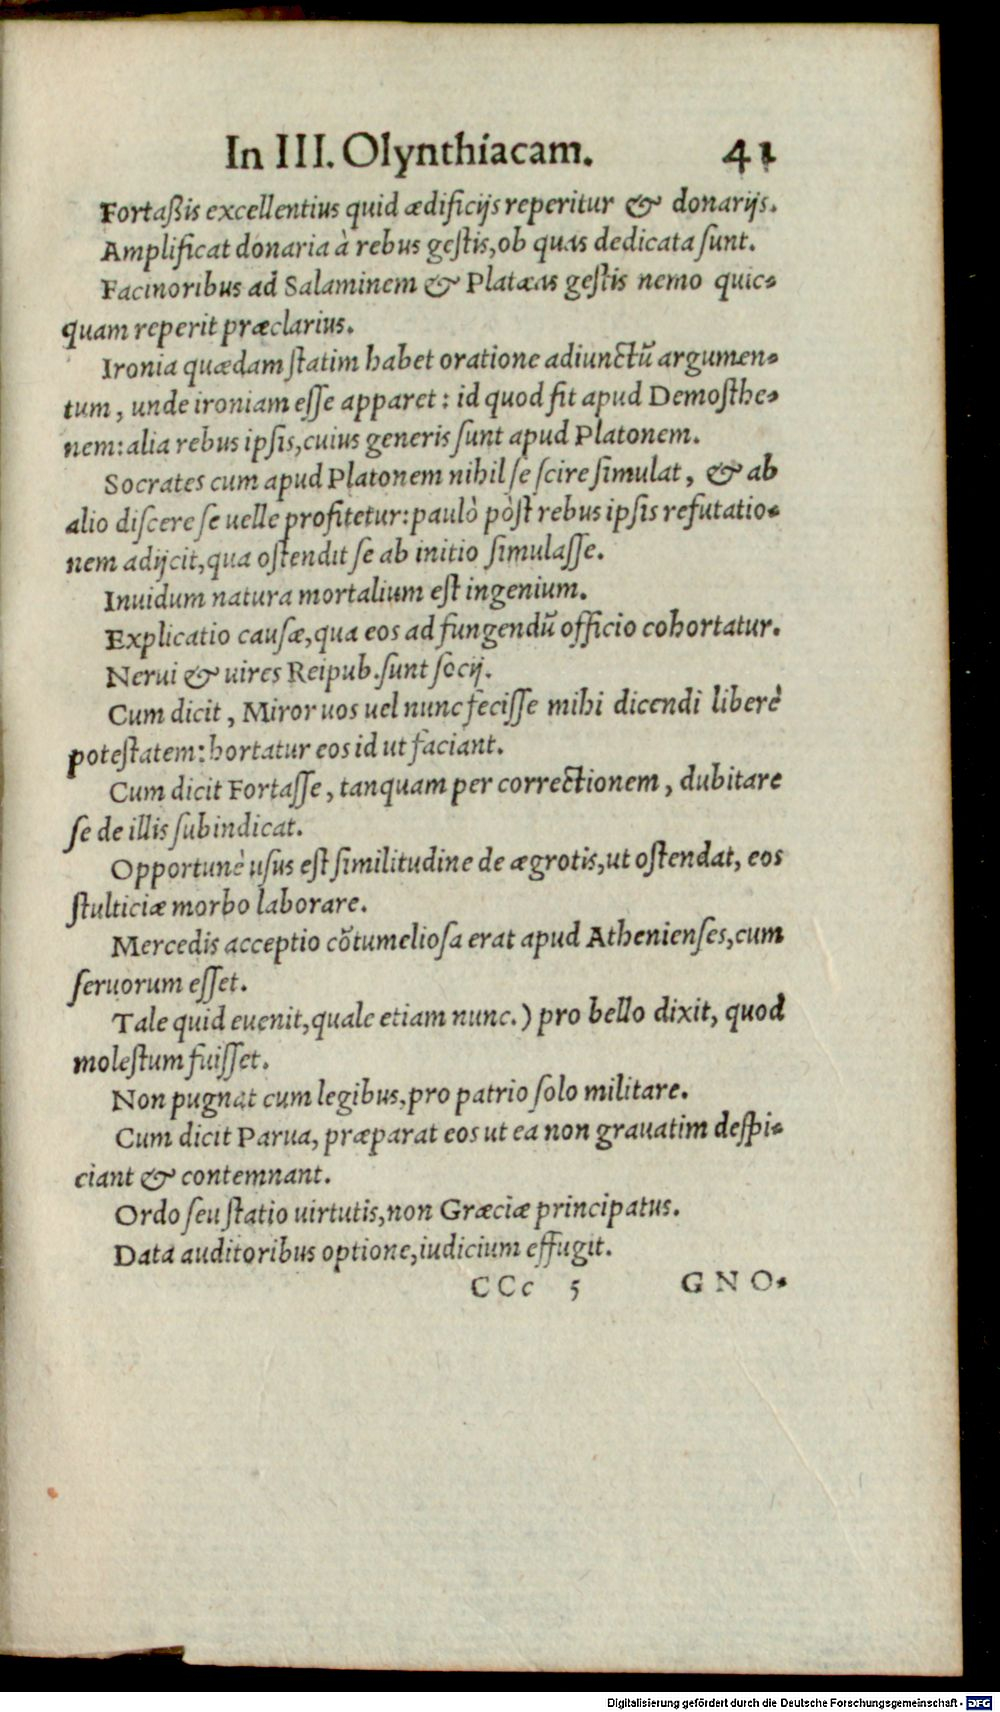 In III. Olynthiacam. 41
Fortaßis excellentius quid ædificijs reperitur & donarijs.
Amplificat donaria à rebus geſtis, ob quas dedicata ſunt.
Facinoribus ad Salaminem & Platæas geſtis nemo quic-
quam reperit præclarius.
Ironia quædam ſtatim habet oratione adiunctũ argumen-
tum, unde ironiam eſſe apparet: id quod fit apud Demoſthe-
nem: alia rebus ipſis, cuius generis ſunt apud Platonem.
Socrates cum apud Platonem nihil ſe ſcire ſimulat, & ab
alio diſcere ſe uelle profitetur: paulò pòſt rebus ipſis refutatio-
nem adijcit, qua oſtendit ſe ab initio ſimulaſſe.
Inuidum natura mortalium eſt ingenium.
Explicatio cauſæ, qua eos ad fungendũ officio cohortatur.
Nerui & uires Reipub. ſunt ſocij.
Cum dicit, Miror uos uel nunc feciſſe mihi dicendi liberè
poteſtatem: hortatur eos id ut faciant.
Cum dicit Fortaſſe, tanquam per correctionem, dubitare
ſe de illis ſubindicat.
Opportunè uſus eſt ſimilitudine de ægrotis, ut oſtendat, eos
ſtulticiæ morbo laborare.
Mercedis acceptio cõtumelioſa erat apud Athenienſes, cum
ſeruorum eſſet.
Tale quid euenit, quale etiam nunc.) pro bello dixit, quod
moleſtum fuiſſet.
Non pugnat cum legibus, pro patrio ſolo militare.
Cum dicit Parua, præparat eos ut ea non grauatim deſpi-
ciant & contemnant.
Ordo ſeu ſtatio uirtutis, non Græciæ principatus.
Data auditoribus optione, iudicium effugit.
CCc 5 GNO-
Digitalisierung gefördert durch die Deutsche Forschungsgemeinschaft - DFG